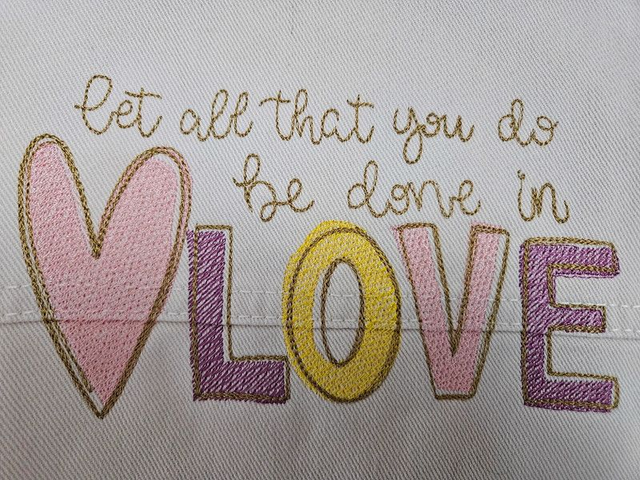 let all that you do
be done in
LOVE